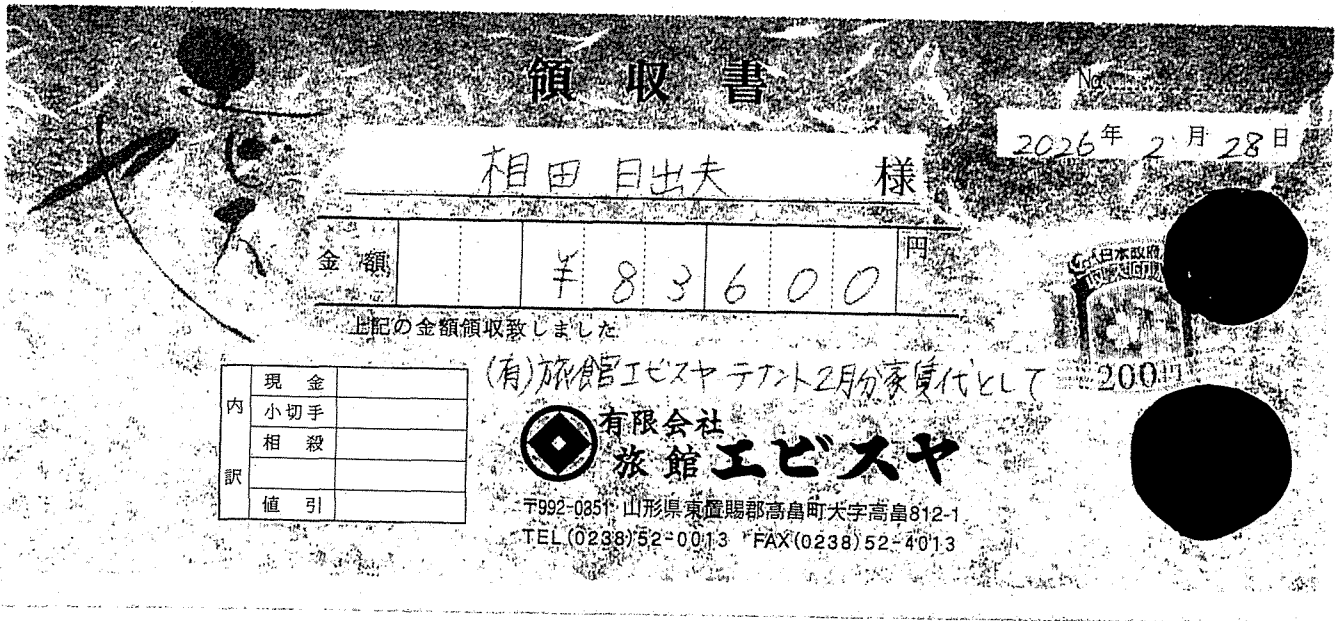 領収書
No.
2026年 2月 28日
相田 日出夫 様
金額 ¥83600円
上記の金額領収致しました
(有)旅館エビスヤ テナント2月分家賃代として
日本政府
200円
内訳
現金
小切手
相殺
値引
有限会社
旅館エビスヤ
〒992-0351 山形県東置賜郡高畠町大字高畠812-1
TEL(0238)52-0013 FAX(0238)52-4013